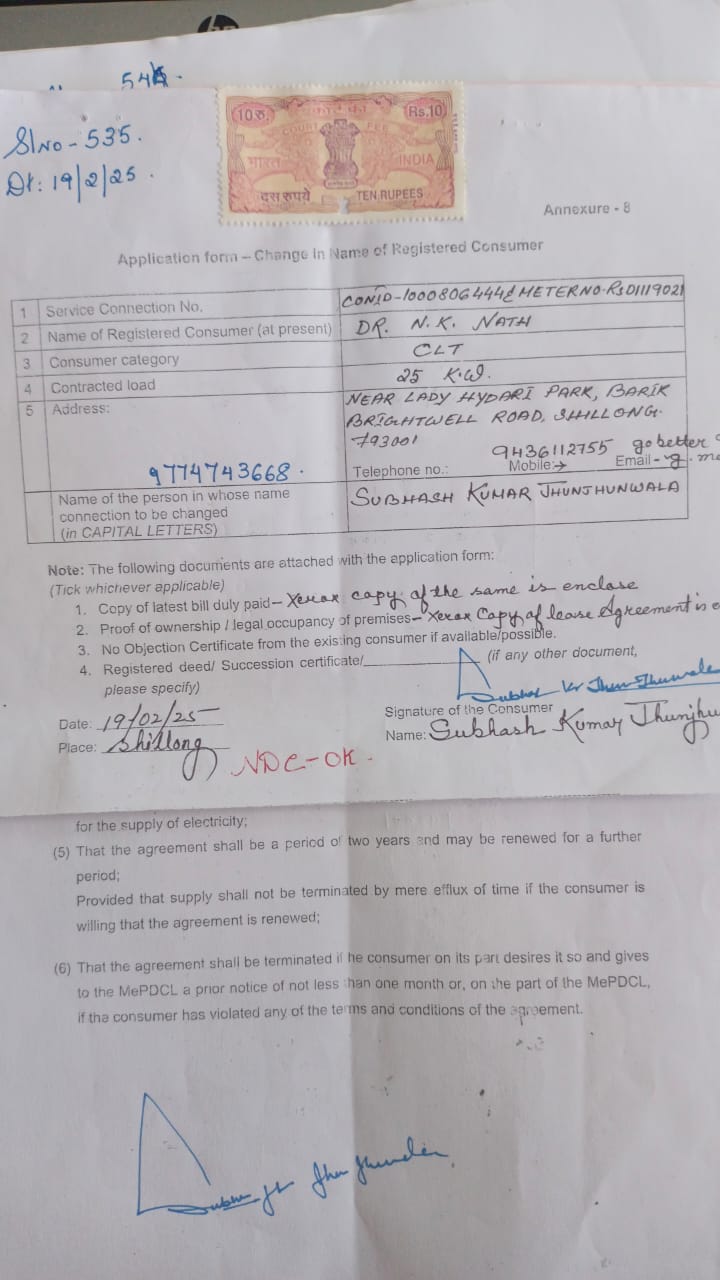 hp
545.
Sl No - 535.
Dt: 19/2/25.
10रु. Rs.10
COURT FEE
भारत INDIA
दस रुपये TEN RUPEES
Annexure - 8
Application form – Change In Name of Registered Consumer
1 Service Connection No. CONID-1000806444 & METER NO-RSD1119021
2 Name of Registered Consumer (at present) DR. N.K. NATH
3 Consumer category CLT
4 Contracted load 25 K.W.
5 Address: NEAR LADY HYDARI PARK, BARIK
BRIGHTWELL ROAD, SHILLONG.
793001
9774743668. Telephone no.: 9436112755 Mobile:→ Email - go better
Name of the person in whose name
connection to be changed
(in CAPITAL LETTERS)
SUBHASH KUMAR JHUNJHUNWALA
Note: The following documents are attached with the application form:
(Tick whichever applicable)
1. Copy of latest bill duly paid – Xerox copy of the same is enclose
2. Proof of ownership / legal occupancy of premises – Xerox Copy of lease Agreement is
3. No Objection Certificate from the existing consumer if available/possible.
4. Registered deed/ Succession certificate/ (if any other document,
please specify)
Date: 19/02/25
Signature of the Consumer
Place: Shillong
Name: Subhash Kumar Jhunjhu
NDC-OK.
for the supply of electricity;
(5) That the agreement shall be a period of two years and may be renewed for a further
period;
Provided that supply shall not be terminated by mere efflux of time if the consumer is
willing that the agreement is renewed;
(6) That the agreement shall be terminated if he consumer on its part desires it so and gives
to the MePDCL a prior notice of not less than one month or, on the part of the MePDCL,
if the consumer has violated any of the terms and conditions of the agreement.